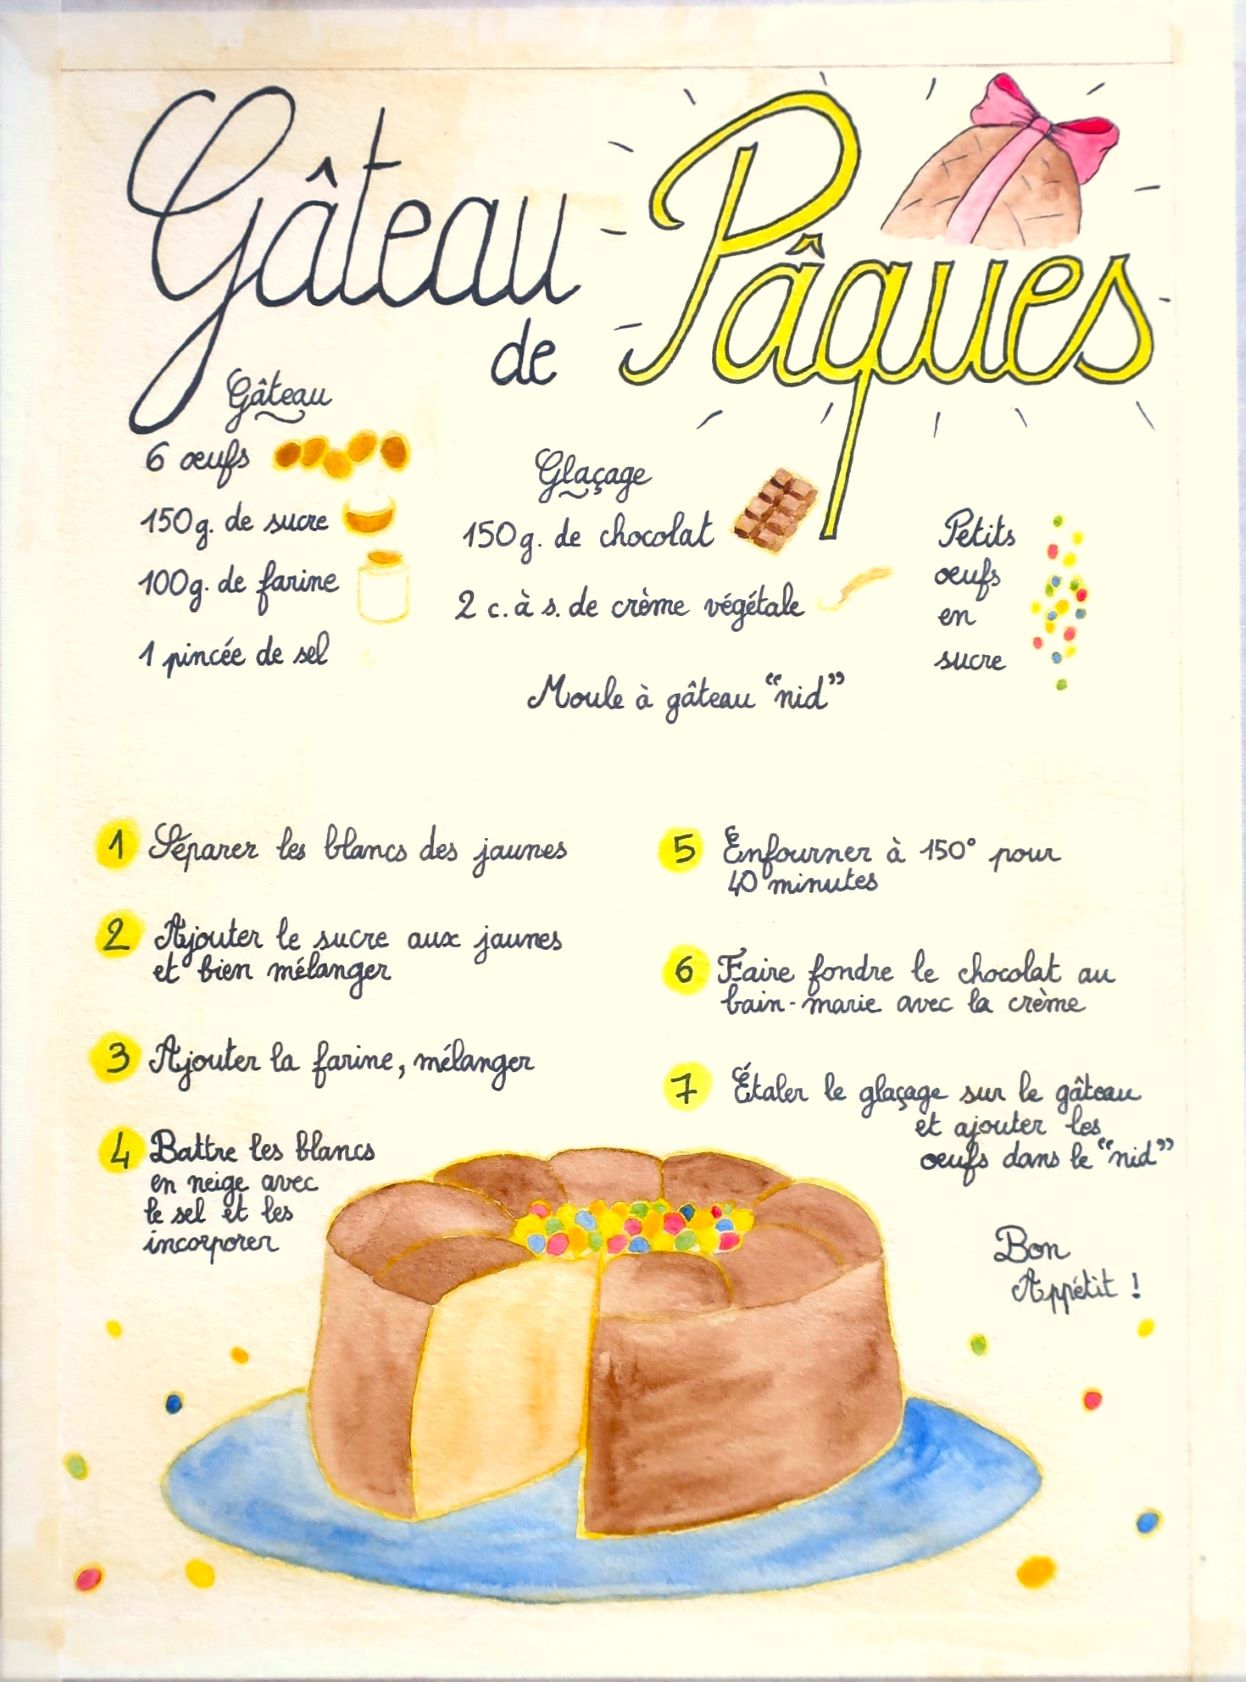 Gâteau
de
Pâques
Gâteau
6 œufs
150g. de sucre
100g. de farine
1 pincée de sel
Glaçage
150g. de chocolat
2 c. à s. de crème végétale
Moule à gâteau “nid”
Petits
œufs
en
sucre
1 Séparer les blancs des jaunes
2 Ajouter le sucre aux jaunes
et bien mélanger
3 Ajouter la farine, mélanger
4 Battre les blancs
en neige avec
le sel et les
incorporer
5 Enfourner à 150° pour
40 minutes
6 Faire fondre le chocolat au
bain-marie avec la crème
7 Étaler le glaçage sur le gâteau
et ajouter les
œufs dans le “nid”
Bon
Appétit !